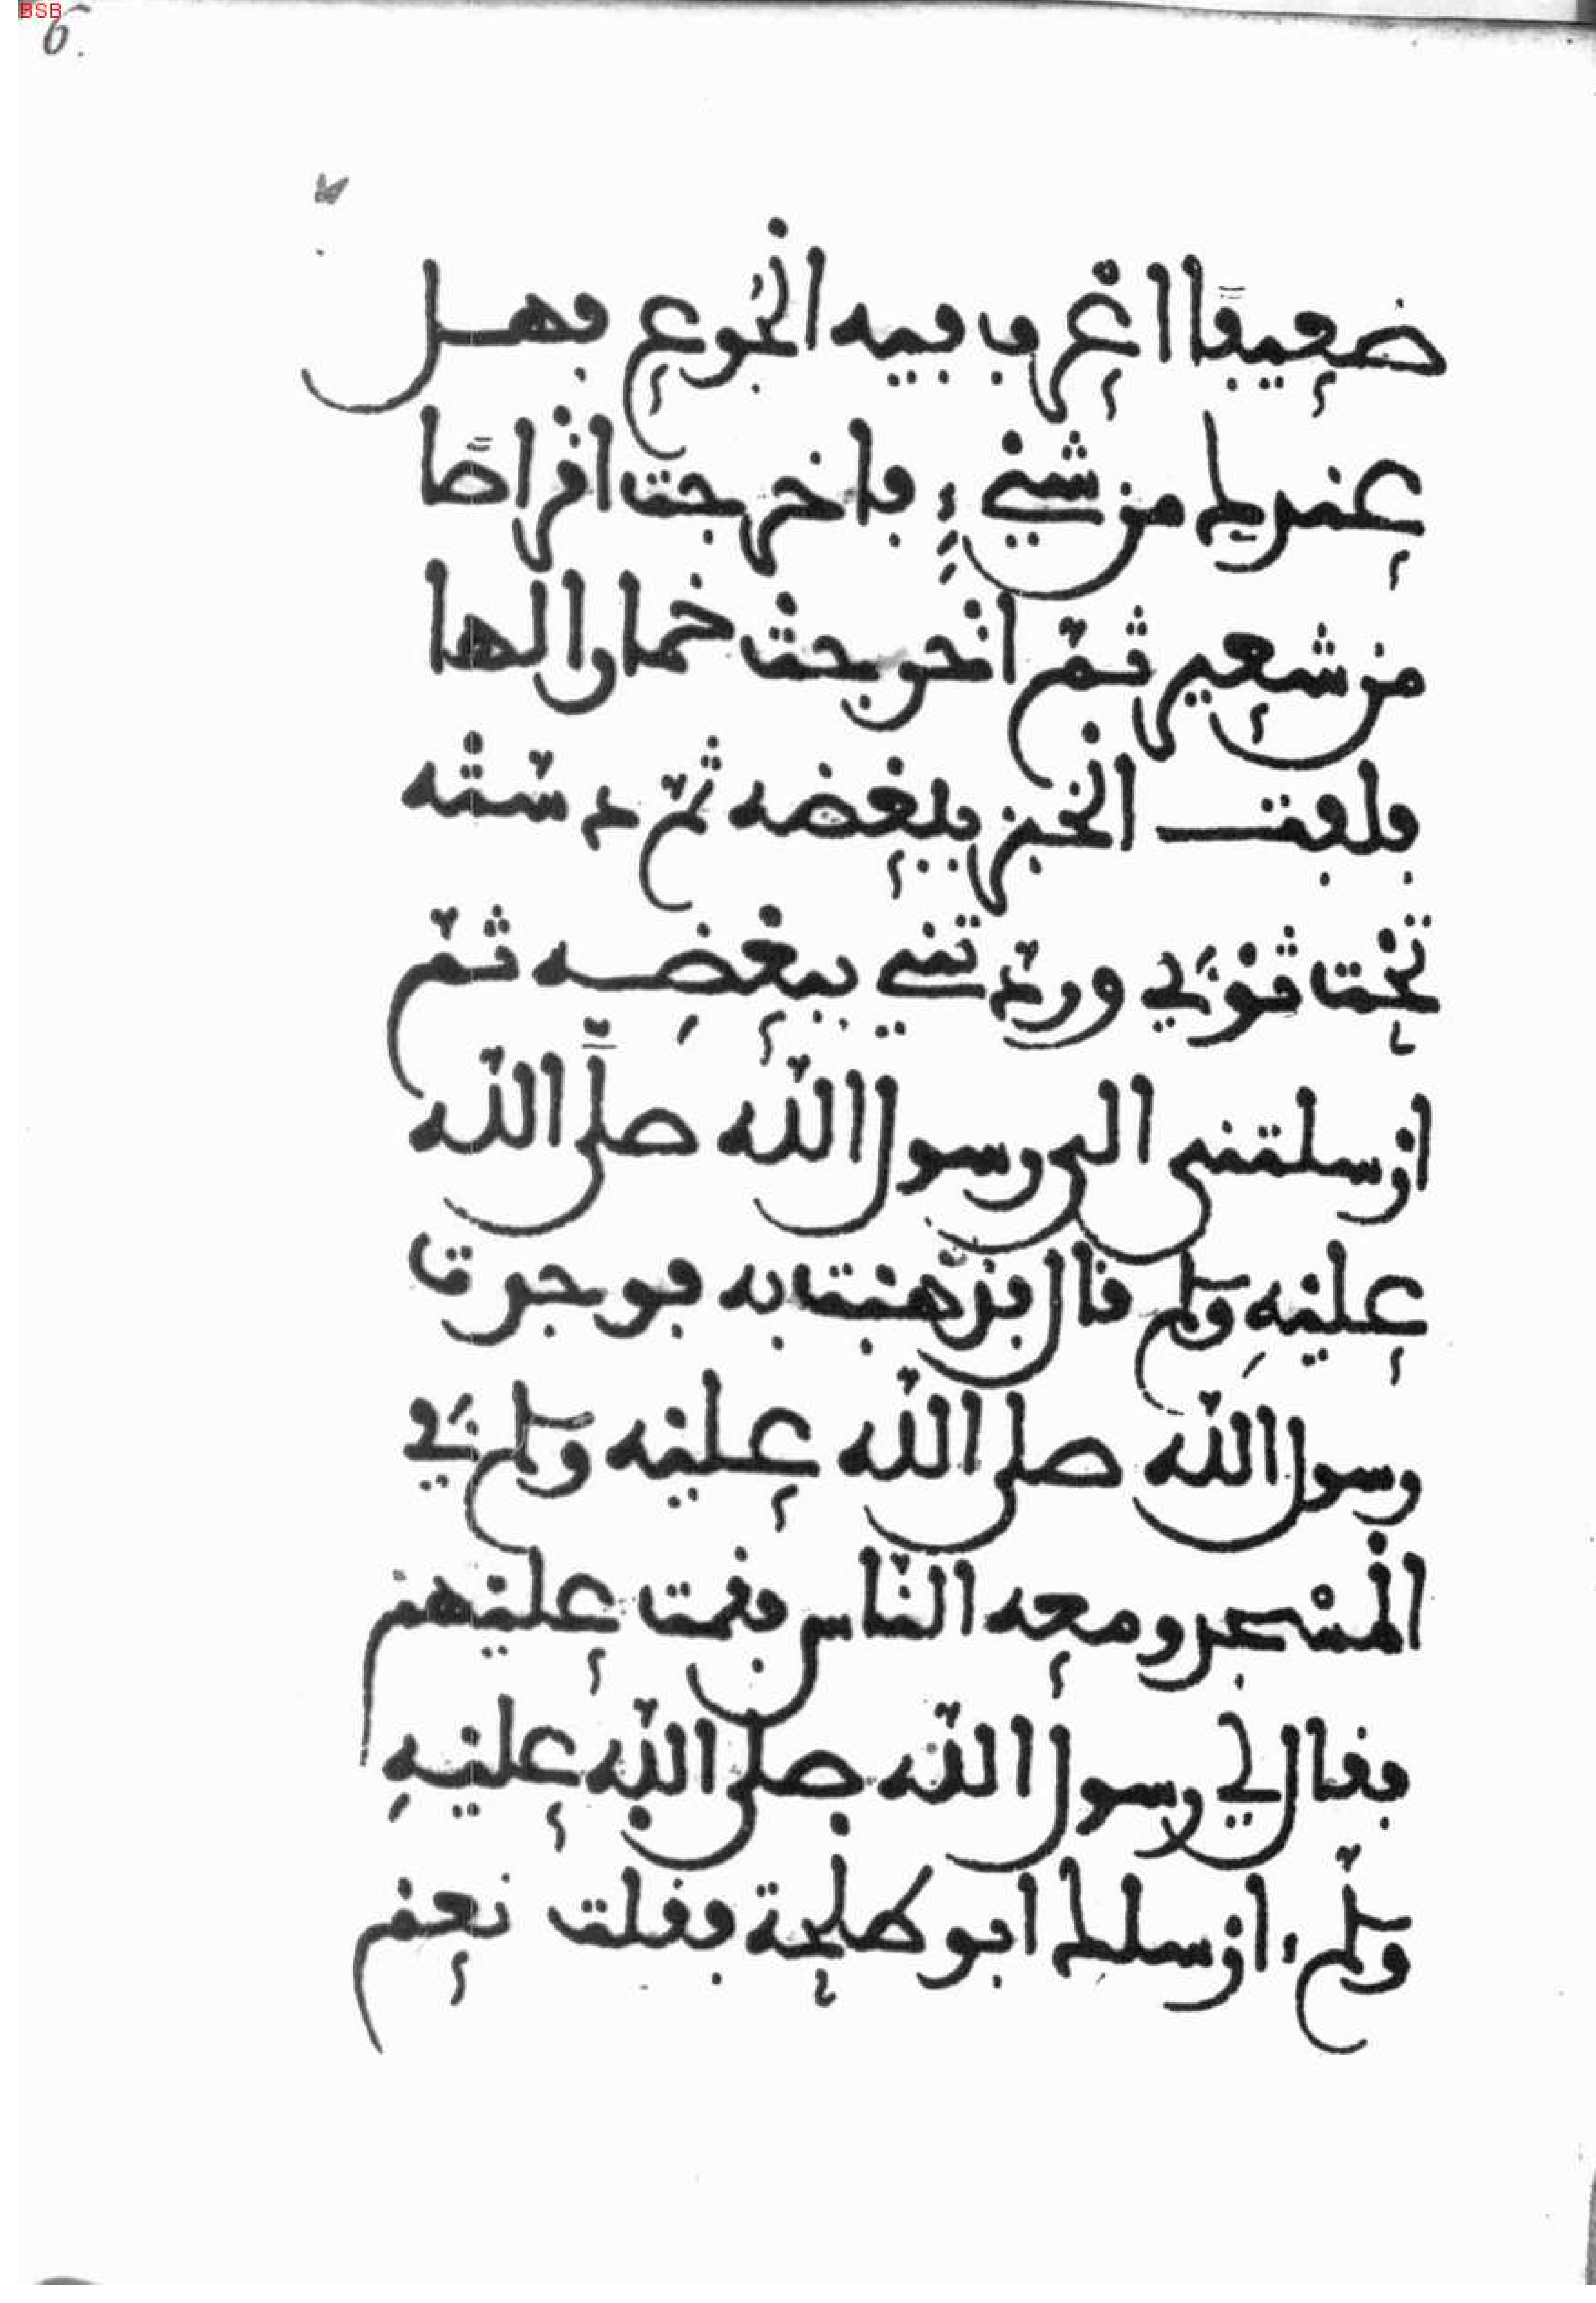 BSB
6.
ضعيفًا اعرف فيه الجُوع فهل
عندك من شيْءٍ فاخرجت اقراصًا
من شعير ثمّ اخرجت خمارا لها
فلفت الخبز ببعضه ثمّ دسّته
تحت ثوْبَي وردّتني ببعْضِه ثمّ
ارْسلتني الى رسول اللّه صلَّى اللّه
عليْهِ وسلم قال فذهبْت به فوجدت
رسول اللّه صلى اللّه عليْه وسلم فَي
المسْجد ومعه النّاس فقمت عليْهمْ
فقال لي رسول اللّه صلى اللّه عليْهِ
وسلّم ارْسلك ابو طلحة فقلت نعمْ